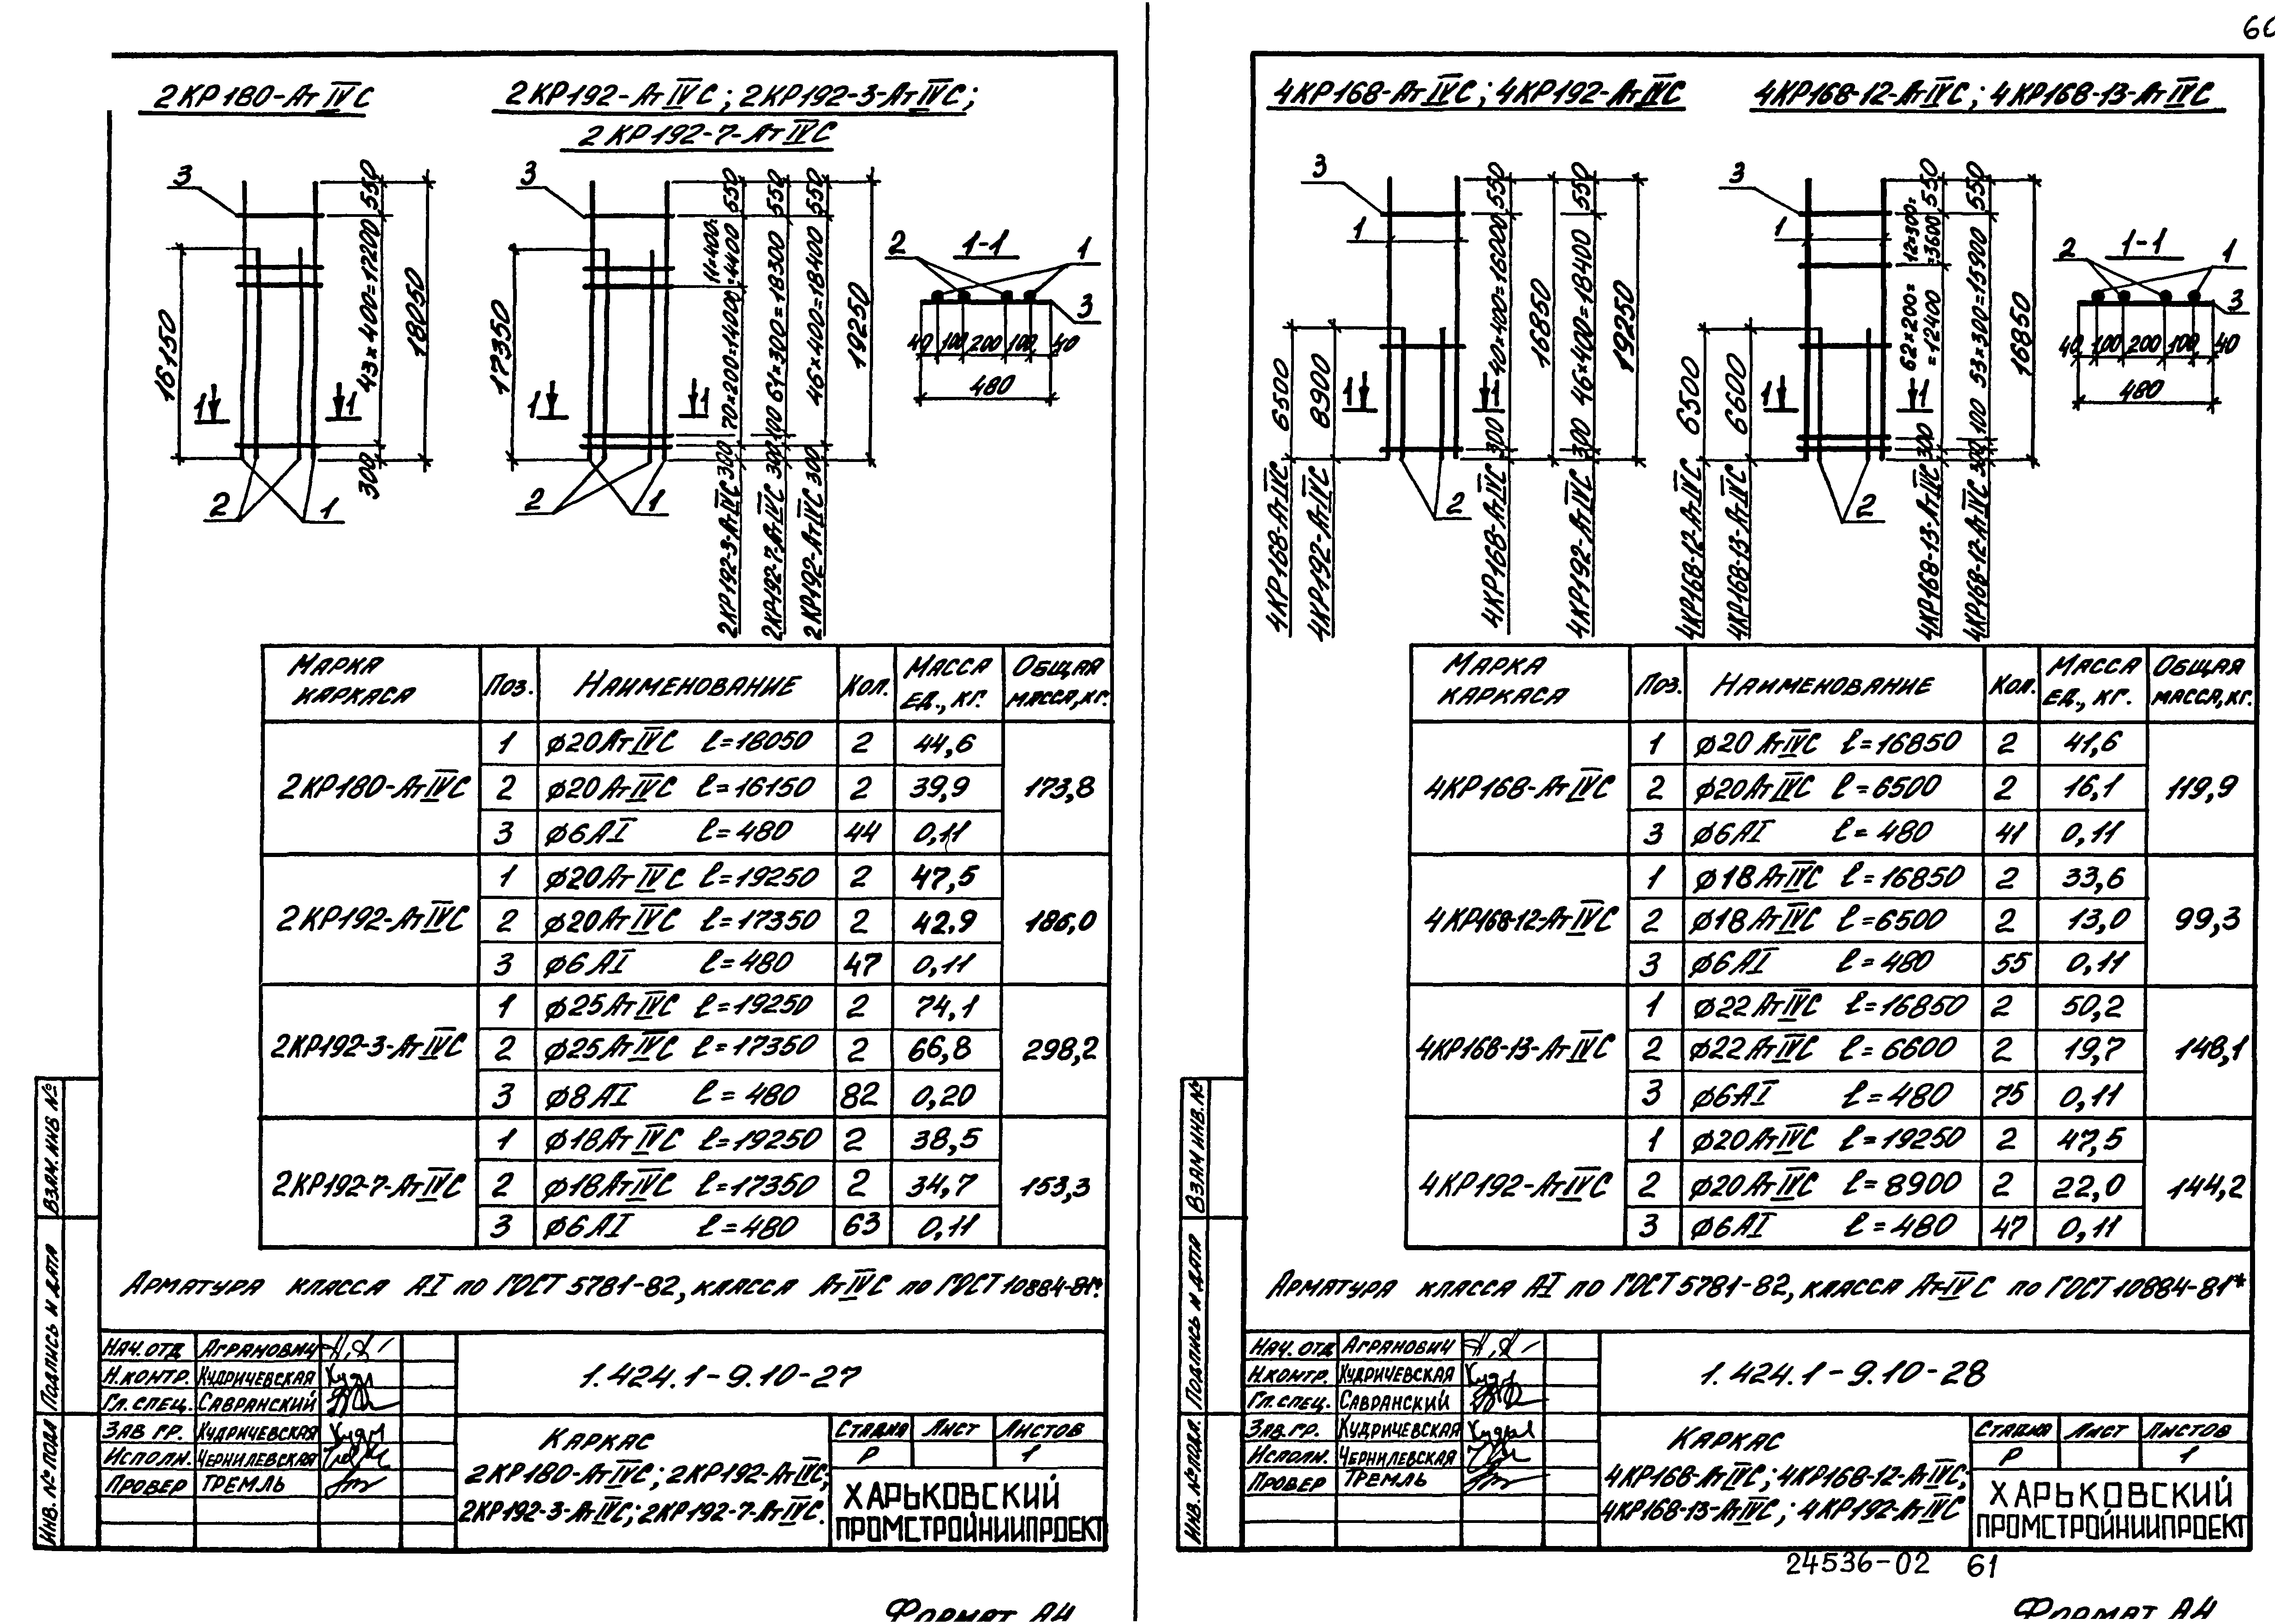 60
2КР180-АтIVС
2КР192-АтIVС; 2КР192-3-АтIVС;
2КР192-7-АтIVС
3
16150
43×400=17200
550
300
18050
1
1
2
1
3
17350
1
1
2
1
11×400=
=4400
550
70×200=14000
300
2КР192-3-АтIVС
550
61×300=18300
100
300
2КР192-7-АтIVС
550
46×400=18400
300
2КР192-АтIVС
19250
2
1-1
1
3
40
100
200
100
40
480
Марка каркаса | Поз. | Наименование | Кол. | Масса ед., кг. | Общая масса, кг.
2КР180-АтIVС | 1 | ø20АтIVС ℓ=18050 | 2 | 44,6 | 173,8
2 | ø20АтIVС ℓ=16150 | 2 | 39,9
3 | ø6АI ℓ=480 | 44 | 0,11
2КР192-АтIVС | 1 | ø20АтIVС ℓ=19250 | 2 | 47,5 | 186,0
2 | ø20АтIVС ℓ=17350 | 2 | 42,9
3 | ø6АI ℓ=480 | 47 | 0,11
2КР192-3-АтIVС | 1 | ø25АтIVС ℓ=19250 | 2 | 74,1 | 298,2
2 | ø25АтIVС ℓ=17350 | 2 | 66,8
3 | ø8АI ℓ=480 | 82 | 0,20
2КР192-7-АтIVС | 1 | ø18АтIVС ℓ=19250 | 2 | 38,5 | 153,3
2 | ø18АтIVС ℓ=17350 | 2 | 34,7
3 | ø6АI ℓ=480 | 63 | 0,11
Арматура класса АI по ГОСТ 5781-82, класса АтIVС по ГОСТ 10884-81*.
Взам. инв №
Подпись и дата
Инв. № подл
Нач. отд Агранович
Н. контр. Кудричевская
Гл. спец. Савранский
Зав гр. Кудричевская
Исполн. Чернилевская
Провер Тремль
1.424.1-9.10-27
Каркас
2КР180-АтIVС; 2КР192-АтIVС;
2КР192-3-АтIVС; 2КР192-7-АтIVС.
Стадия Лист Листов
Р 1
ХАРЬКОВСКИЙ
ПРОМСТРОЙНИИПРОЕКТ
Формат А4
4КР168-АтIVС; 4КР192-АтIVС
4КР168-12-АтIVС; 4КР168-13-АтIVС
3
1
6500
4КР168-АтIVС
8900
4КР192-АтIVС
1
1
2
550
40×400=16000
300
4КР168-АтIVС
16850
550
46×400=18400
300
4КР192-АтIVС
19250
3
1
6500
4КР168-12-АтIVС
6600
4КР168-13-АтIVС
1
1
2
550
12×300=
=3600
62×200=
=12400
300
4КР168-13-АтIVС
550
53×300=15900
100
300
4КР168-12-АтIVС
16850
2
1-1
1
3
40
100
200
100
40
480
Марка каркаса | Поз. | Наименование | Кол. | Масса ед., кг. | Общая масса, кг.
4КР168-АтIVС | 1 | ø20АтIVС ℓ=16850 | 2 | 41,6 | 119,9
2 | ø20АтIVС ℓ=6500 | 2 | 16,1
3 | ø6АI ℓ=480 | 41 | 0,11
4КР168-12-АтIVС | 1 | ø18АтIVС ℓ=16850 | 2 | 33,6 | 99,3
2 | ø18АтIVС ℓ=6500 | 2 | 13,0
3 | ø6АI ℓ=480 | 55 | 0,11
4КР168-13-АтIVС | 1 | ø22АтIVС ℓ=16850 | 2 | 50,2 | 148,1
2 | ø22АтIVС ℓ=6600 | 2 | 19,7
3 | ø6АI ℓ=480 | 75 | 0,11
4КР192-АтIVС | 1 | ø20АтIVС ℓ=19250 | 2 | 47,5 | 144,2
2 | ø20АтIVС ℓ=8900 | 2 | 22,0
3 | ø6АI ℓ=480 | 47 | 0,11
Арматура класса АI по ГОСТ 5781-82, класса АтIVС по ГОСТ 10884-81*
Взам инв. №
Подпись и дата
Инв. № подл.
Нач. отд Агранович
Н.контр. Кудричевская
Гл. спец. Савранский
Зав. гр. Кудричевская
Исполн. Чернилевская
Провер Тремль
1.424.1-9.10-28
Каркас
4КР168-АтIVС; 4КР168-12-АтIVС;
4КР168-13-АтIVС; 4КР192-АтIVС
Стадия Лист Листов
Р 1
ХАРЬКОВСКИЙ
ПРОМСТРОЙНИИПРОЕКТ
24536-02 61
Формат А4